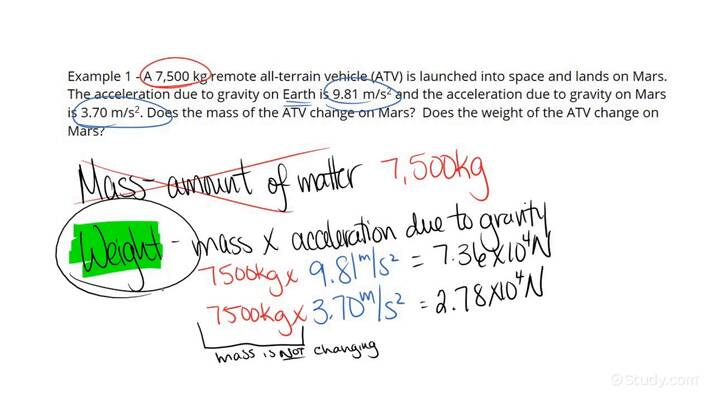 Example 1 - A 7,500 kg remote all-terrain vehicle (ATV) is launched into space and lands on Mars.
The acceleration due to gravity on Earth is 9.81 m/s² and the acceleration due to gravity on Mars
is 3.70 m/s². Does the mass of the ATV change on Mars? Does the weight of the ATV change on
Mars?
Mass - amount of matter 7,500kg
Weight - mass x acceleration due to gravity
7500kg x 9.81 m/s² = 7.36 x 10⁴ N
7500kg x 3.70 m/s² = 2.78 x 10⁴ N
mass is NOT changing
©Study.com